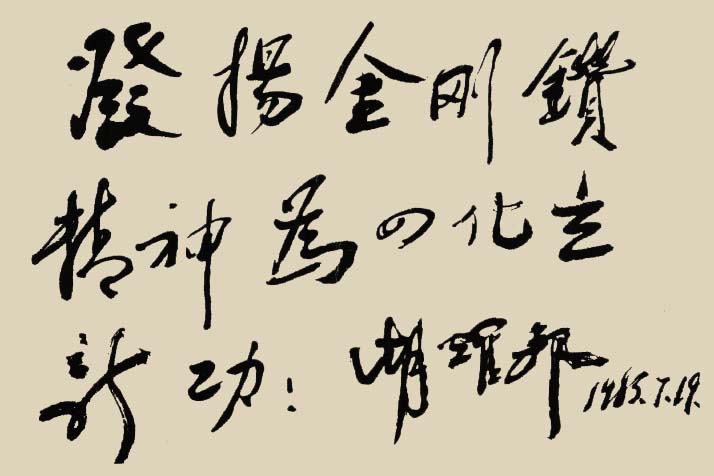 發揚金刚鑽
精神為四化立
新功! 胡耀邦 1985.7.19.